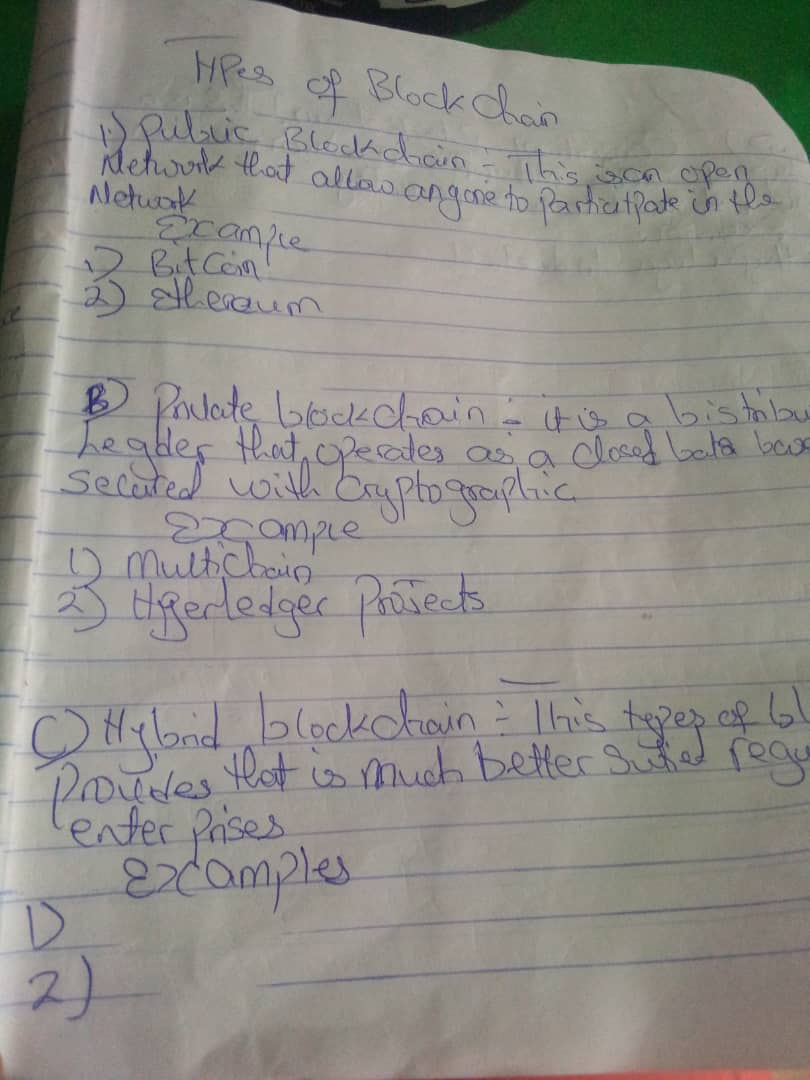 Types of Blockchain
1) Public Blockchain :- This is an open
Network that allow anyone to Particitpate in the
Network
Example
1) BitCoin
2) Ethereum
B) Private blockchain :- it is a bistribu
Legder that operates as a closed bata bas
secured with Cryptographic
Example
1) Multichain
2) Hyperledger Projects
C) Hybrid blockchain :- This types of bl
Provides that is much better Suited regu
enter Prises
Examples
1)
2)